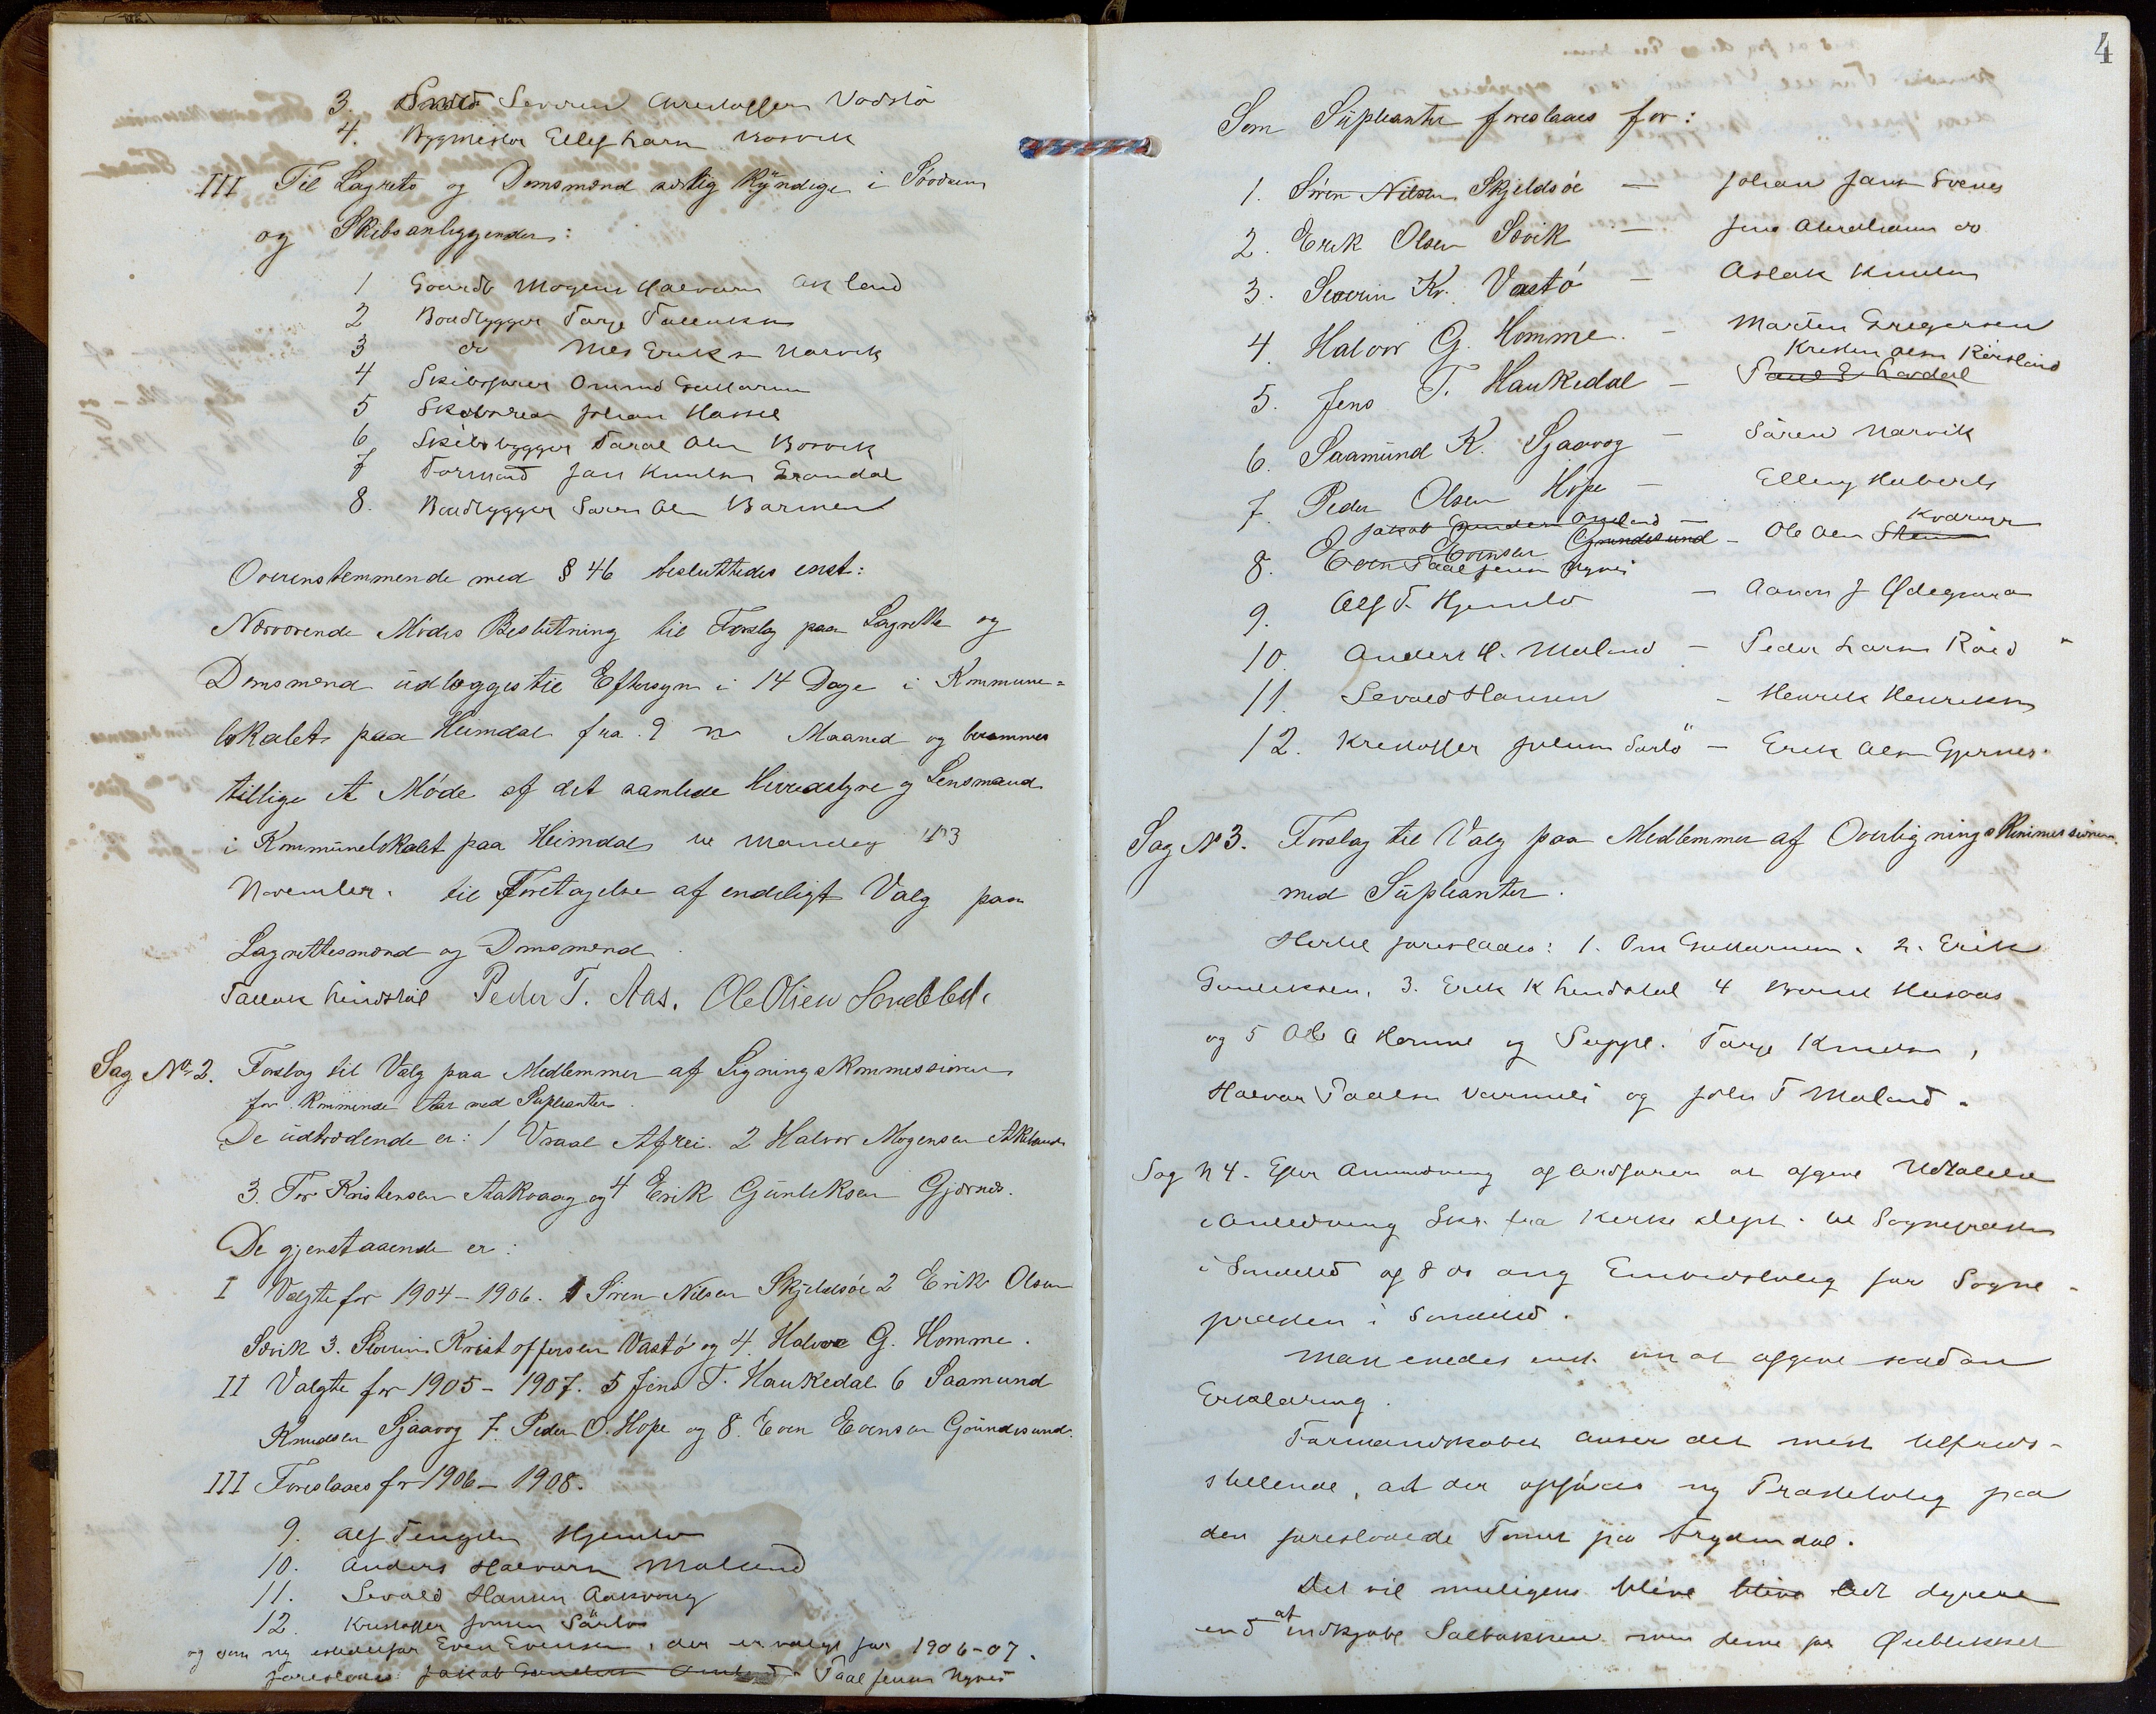 3. Smed Severin Christoffersen Vadstö
4. Bygmester Ellef Larsen Bosvik
III Til Lagrets og Domsmænd særlig Kÿndige i Södøens
og Skibsanliggender:
1 Gaardb Mogens Halvorsen Akland
2 Baadbygger Tarje Tallaksen
3 do Nils Eriksen Narvik
4 Skibsfører Omund Guttormsen
5 Skibsreder Johan Hassel
6 Skibsbygger Taral Olsen Bosvik
7 Formand Jan Knutsen Grandal
8. Baadbygger Søren Olsen Barmen
Overenstemmende med § 46 besluttedes enst:
Nærværende Mödes Beslutning til Forslag paa Lagrette og
Domsmænd üdlægges til Eftersyn i 14 Dage i Kommune=
lokalet paa Heimdal fra 9 Maaned og berammes
tillige et Möde af det samlede Herredstyre og Lensmand
i Kommünelokalet paa Heimdal til Mandag 13
November. til Foretagelse af endeligt Valg paa
Lagrettesmænd og Domsmænd.
Tallak Lindstøl Peder T. Aas. Ole Olsen Sondeled.
Sag No 2. Forslag til Valg paa Medlemmer af Ligningskommissionen
for Kommende Aar med Süpleanter.
De üdtrædende er: 1 Vraal Afrei. 2 Halvor Mogensen Akland
3. Tor Kristensen Aakvaag og 4 Erik Günleksen Gjernes.
De gjenstaaende er:
I Valgte for 1904-1906. 1 Sören Nilsen Skjeldsöe 2 Erik Olsen
Sivik 3. Severin Kristoffersen Vastö og 4. Halvor G. Homme.
II Valgte for 1905-1907. 5 Jens T. Haukedal 6 Saamund
Knudsen Sjaavog 7. Peder O. Hope og 8. Even Evensen Gründesund.
III Foreslaaes for 1906-1908.
9. Alf Tengelsen Hjemlv
10. Anders Halvorsen Moland
11. Sevald Hansen Aakvaag
12. Kristoffer Jensen Sørlø
og som ny istedetfor Even Evensen, der er valgt for 1906-07.
foreslaaes Jakob Gundersen Paal Jensen Nynes
4
Som Süpleanter foreslaaes for:
1. Sören Nilsen Skjeldsöe — Johan Jansen
2. Erik Olsen Sivik — Jens Abrahamsen do
3. Severin Kr. Vastö — Aslak Knutsen
4. Halvor G. Homme. — Marten Gregersen
Kristen Olsen Rørsland
5. Jens T. Haukedal — Paul E Lavdal
6. Saamünd K. Sjaavog — Søren Narvik
7. Peder Olsen Hope — Elling Huberts
Jakob Gundersen — Kvarmen
8. Even Evensen Grundesund — Ole Olsen
Paal Jensen Nynes
9. Alf T. Hjemlv — Aanon J Ødegaard
10. Anders H. Moland — Peder Larsen Röed
11. Sevald Hansen — Henrik Henriksen
12. Kristoffer Jensen Sørlö — Erik Olsen Gjernes.
Sag No 3. Forslag til Valg paa Medlemmer af Overligningskommissionen
med Süpleanter.
Hertil foreslaaes: 1. Om Guttormsen. 2. Erik
Gunleksen, 3. Erik K Lindstøl 4 Husaas
og 5 Ole A Homme og Suppl. Tarje Knutsen,
Halvor Paalsen Varmeli og John T Moland.
Sag N 4. Efter Anmodning af Ordføren at afgive Udtalelse
i Anledning Skr. fra Kirke dept. til Sognepresten
i Søndeled af 8 do ang Embedsbolig for Sogne-
presten i Søndeled.
Man enedes enst. om at afgive saadan
Erklæring.
Formandskabet anser det mest tilfreds-
stillende, at der opføres ny Prestebolig paa
den foreslaaede Tomt paa Frydendal.
Det vil muligens blive blive lidt dyrere
end at indkjøbe Solbakken men denne for Øieblikket